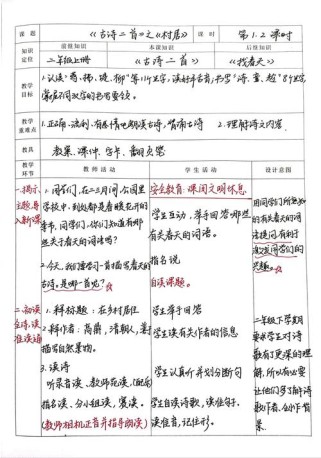 课题 《古诗二首》之《村居》 课时 第1.2课时
知识定位 前继知识 本课知识 后续知识
二年级上册 《古诗二首》 《找春天》
教学目标
1.认读
等11个生字,读好多音字;书写"诗、童
8个生字,
掌握不同汉字的书写要领。
教学重难点
1.正确、流利、有感情地朗读古诗,背诵古诗 2.理解诗文内容。
教具 教案、课件、字卡
教学环节 教师活动 学生活动 设计意图
一.揭示主题,导入新课
1.同学们,在二三月间,公园里
学校中,到处都是春暖花开的
季节,同学们,你们知道有哪
些关于春天的词语吗?
2.今天,我们要学习一首描写春天的
古诗。是哪一首呢?
安全教育:课间文明休息
学生互动,举手回答哪些
有关春天的词语。
指名说
自读课题。
用同学们所熟知
的有关春天的词
语提问,有利于
激发同学们的
兴趣。
二.初读古诗,读准读通
1.释标题:在乡村居住
2.释作者:高鼎,清朝人,
描
写自然景物。
3.读诗
听录音读、教师范读、
指名读、分小组读、赛读。
(教师相机正音并指导朗读)
学生举手回答
学生读有关作者的信息
学生认真听并划分断句
学生自读诗歌,读准句子,
读准音,记住形。
二年级下学期
要求学生对诗
歌有了更深的理
解,所以有必要
让他们多了解诗
歌作者、创作背
景。